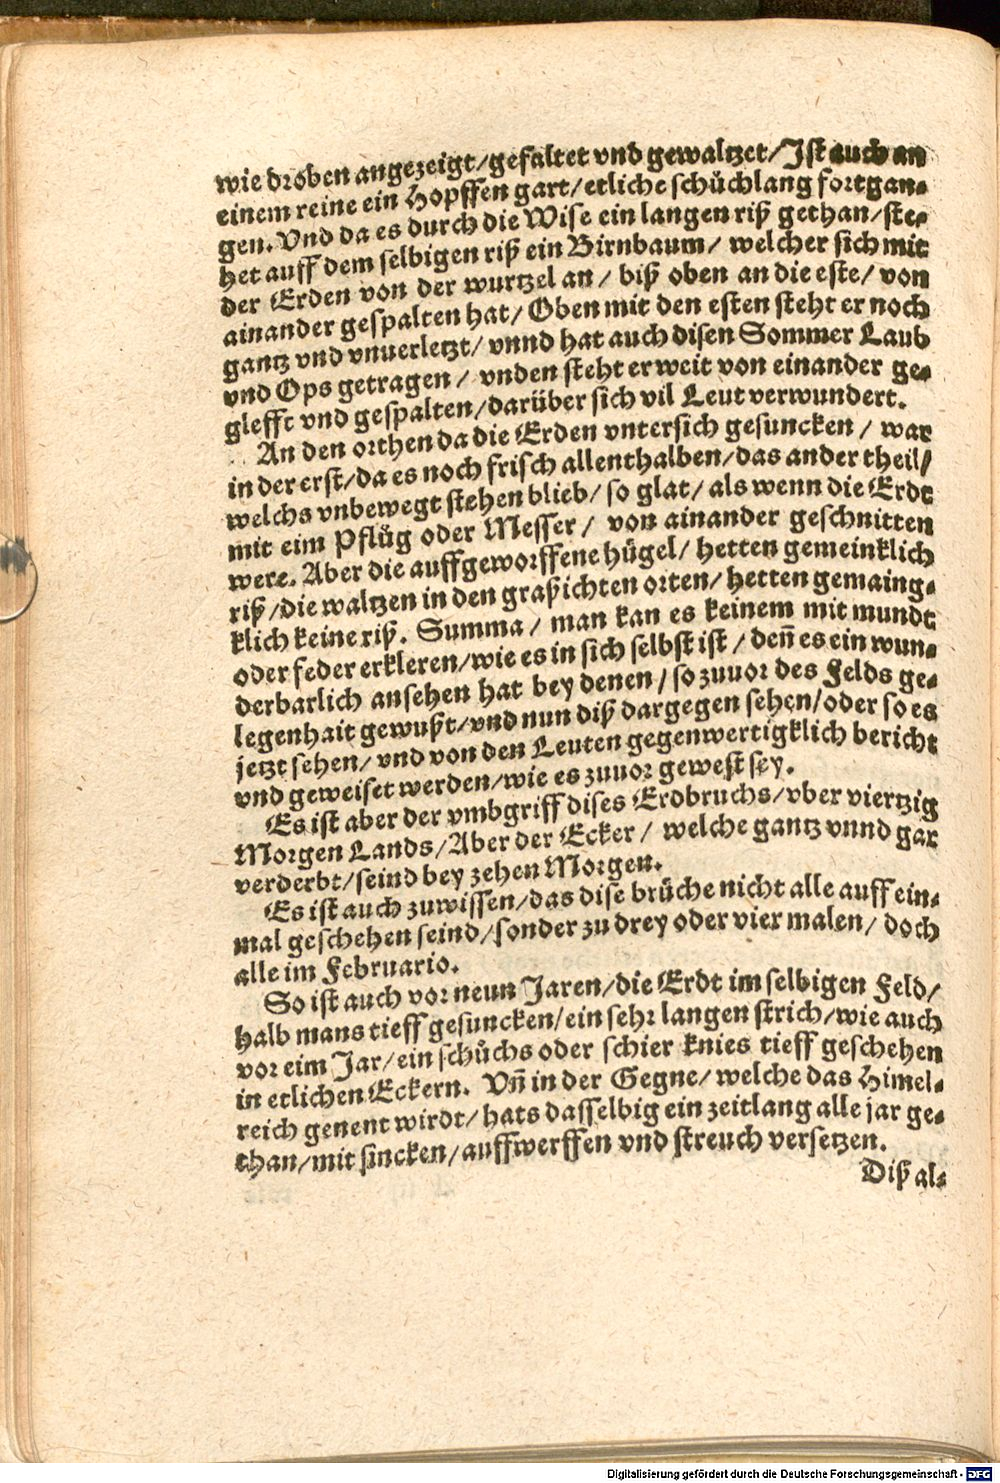 wie droben angezeigt/gefaltet vnd gewaltzet/Ist auch an
einem reine ein Hopffen gart/etliche schůchlang fortgan-
gen. Vnd da es durch die Wise ein langen riß gethan/ste-
het auff dem selbigen riß ein Birnbaum/ welcher sich mit
der Erden von der wurtzel an/ biß oben an die este/ von
ainander gespalten hat/ Oben mit den esten steht er noch
gantz vnd vnuerletzt/ vnnd hat auch disen Sommer Laub
vnd Ops getragen/ vnden steht er weit von einander ge-
glefft vnd gespalten/darüber sich vil Leut verwundert.
An den orthen da die Erden vntersich gesuncken/ war
in der erst/da es noch frisch allenthalben/das ander theil/
welchs vnbewegt stehen blieb/ so glat/ als wenn die Erdt
mit eim Pflůg oder Messer/ von ainander geschnitten
were. Aber die auffgeworffene hügel/ hetten gemeinklich
riß/die waltzen in den graßichten orten/ hetten gemaing-
klich keine riß. Summa/ man kan es keinem mit mundt
oder feder erkleren/wie es in sich selbst ist/ deñ es ein wun-
derbarlich ansehen hat bey denen/so zuuor des Felds ge-
legenhait gewußt/vnd nun diß dargegen sehen/oder so es
jetzt sehen/ vnd von den Leuten gegenwertigklich bericht
vnd geweiset werden/wie es zuuor gewest sey.
Es ist aber der vmbgriff dises Erdbruchs/vber viertzig
Morgen Lands/Aber der Ecker/ welche gantz vnnd gar
verderbt/seind bey zehen Morgen.
Es ist auch zuwissen/das dise brüche nicht alle auff ein-
mal geschehen seind/sonder zu drey oder vier malen/ doch
alle im Februario.
So ist auch vor neun Jaren/die Erdt im selbigen Feld/
halb mans tieff gesuncken/ein sehr langen strich/wie auch
vor eim Jar/ein schůchs oder schier knies tieff geschehen
in etlichen Eckern. Vñ in der Gegne/welche das Himel-
reich genent wirdt/hats dasselbig ein zeitlang alle jar ge-
than/mit sincken/auffwerffen vnd streuch versetzen.
Diß al-
Digitalisierung gefördert durch die Deutsche Forschungsgemeinschaft - DFG